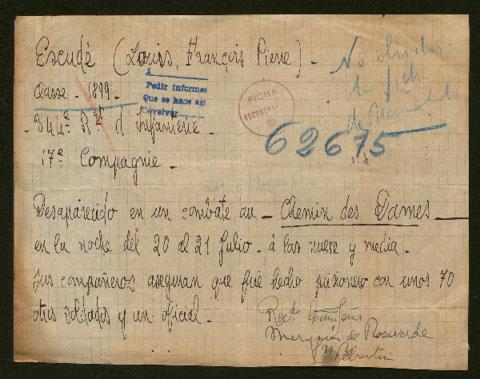 Escudé (Louis, François Pierre) -
classe - 1899 -
A
Pedir informes
que se hace así
devolver
FICHA
No olvidar
la ficha
de
62675
- 344e Rgt d'infanterie -
17e Compagnie -
Desaparecido en un combate au - Chemin des Dames -
en la noche del 20 al 21 Julio - á las nueve y media -
Sus compañeros aseguran que fue hecho prisionero con unos 70
otros soldados y un oficial -
Marquis de